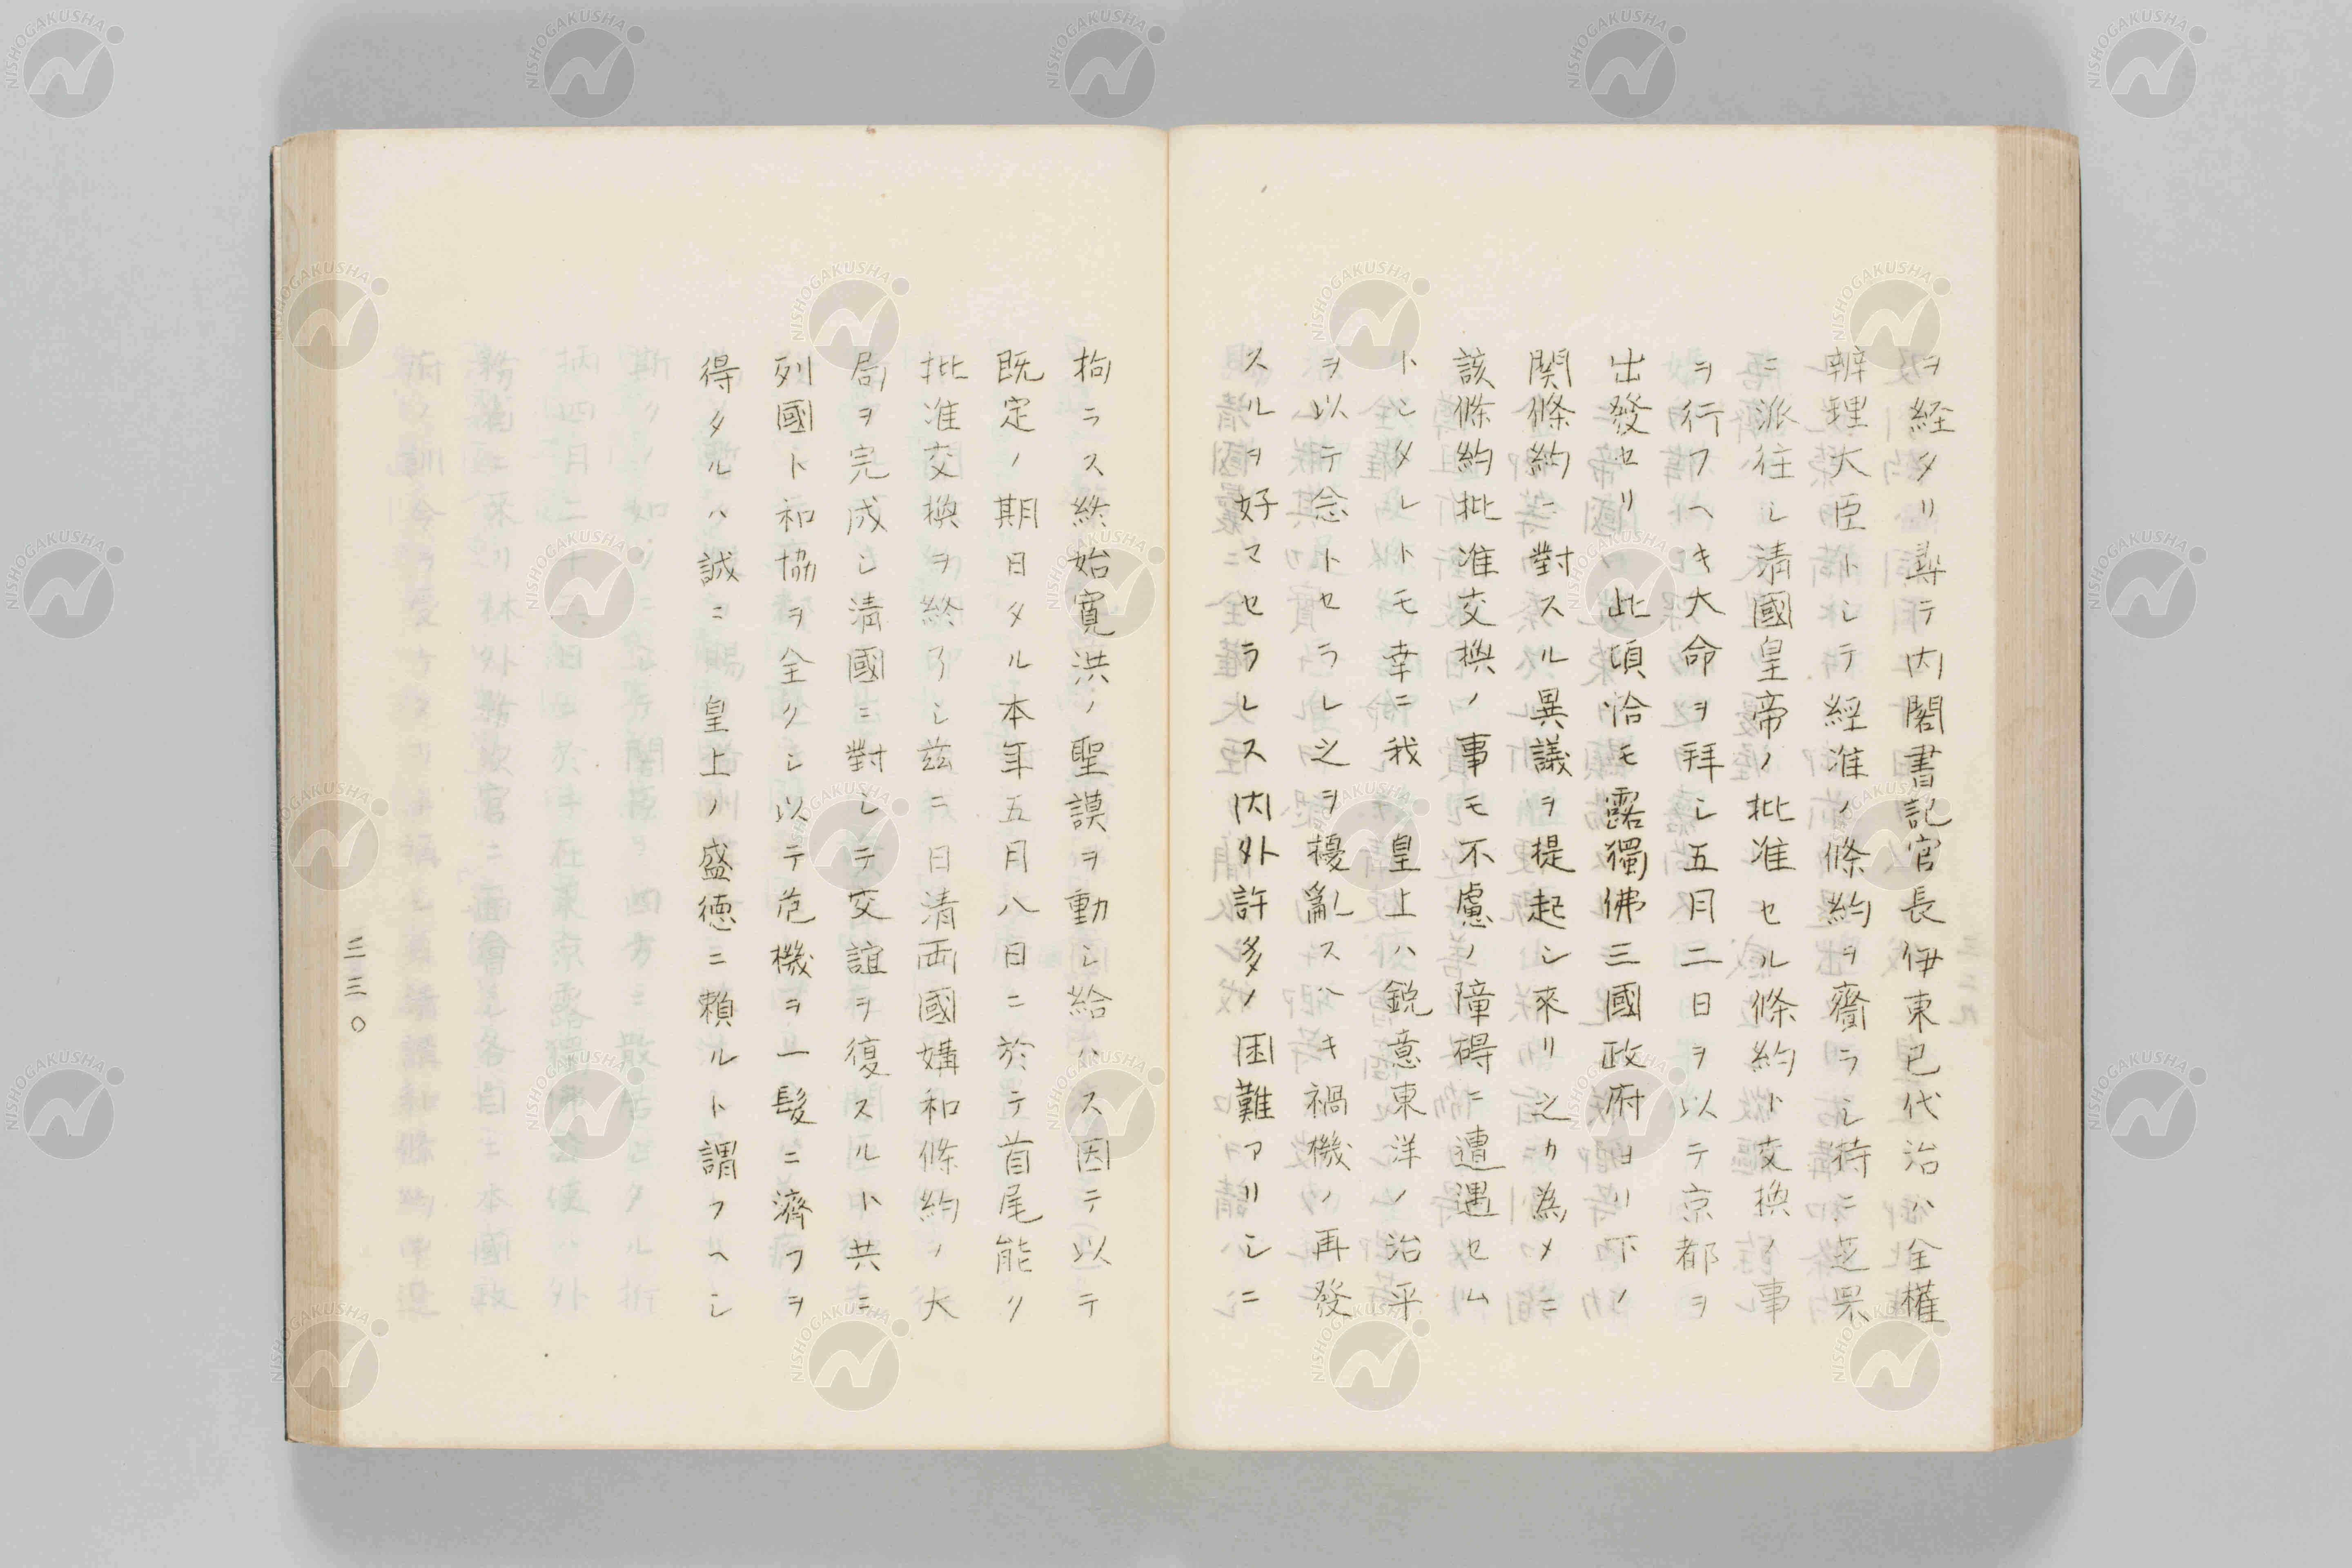 ヲ経タリ尋テ内閣書記官長伊東已代治ハ全權
辨理大臣トシテ經准ノ條約ヲ齎ラシ特ニ芝罘
ニ派往シ淸國皇帝ノ批准セル條約ト交換ノ事
ヲ行フヘキ大命ヲ拜シ五月二日ヲ以テ京都ヲ
出發セリ此頃洽モ露獨佛三國政府ヨリ下ノ
関條約ニ對スル異議ヲ提起シ來リ之カ為メニ
該條約批准交換ノ事モ不慮ノ障碍ニ遭遇セム
トシタレトモ幸ニ我皇上ハ鋭意東洋ノ治平
ヲ以テ念トセラレ之ヲ擾亂スヘキ禍機ノ再發
スルヲ好マセラレス内外許多ノ困難アリシニ
拘ラス終始寛洪ノ聖謨ヲ動シ給ハス因テ以テ
既定ノ期日タル本年五月八日ニ於テ首尾能ク
批准交換ヲ終了シ茲ニ日清両國媾和條約ノ大
局ヲ完成シ淸國ニ對シテ交誼ヲ復スルト共ニ
列國ト和協ヲ全クシ以テ危機ヲ一髮ニ濟フヲ
得タルハ誠ニ皇上ノ盛徳ニ頼ルト謂フヘシ
二三〇
NISHOGAKUSHA